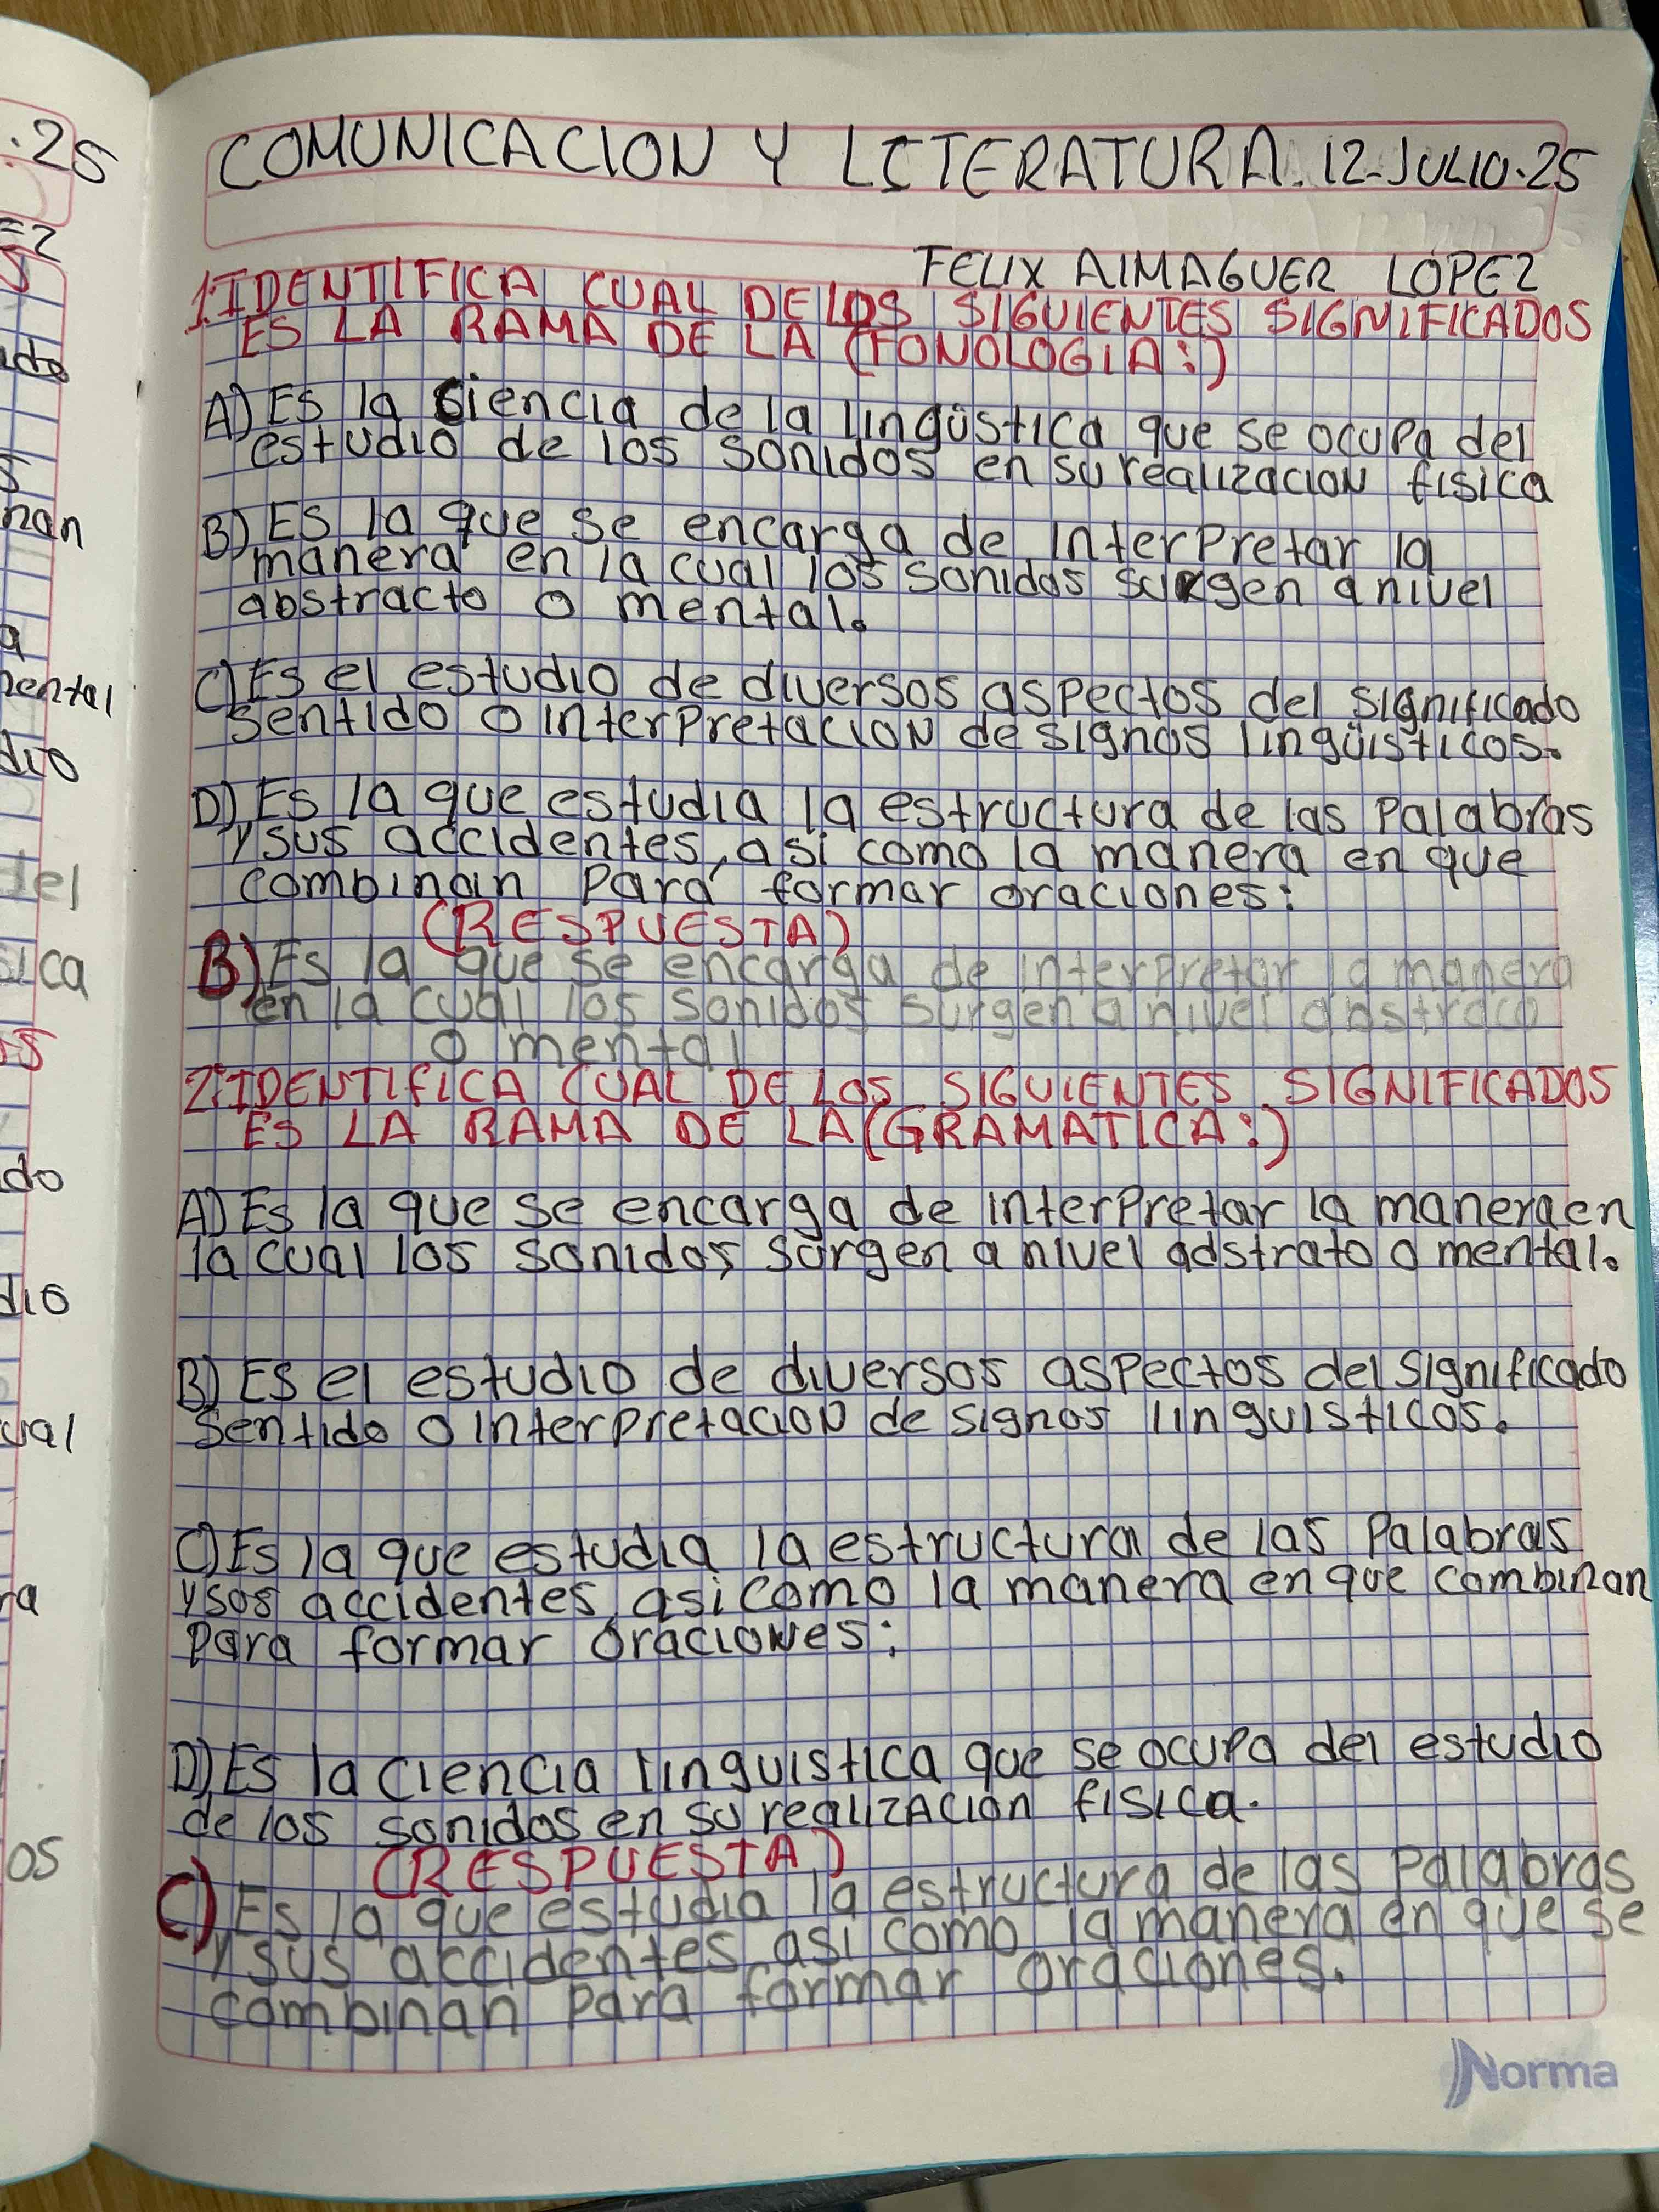 COMUNICACION Y LITERATURA. 12-JULIO-25
FELIX AlMAGUER LOPEZ
1. IDENTIFICA CUAL DE LOS SIGUIENTES SIGNIFICADOS
ES LA RAMA DE LA (FONOLOGIA:)
A) Es la ciencia de la lingüstica que se ocupa del
estudio de los sonidos en su realizacion fisica
B) Es la que se encarga de interpretar la
manera en la cual los sonidos surgen a nivel
abstracto o mental.
C) Es el estudio de diversos aspectos del significado
sentido o interpretacion de signos lingüisticos.
D) Es la que estudia la estructura de las palabras
y sus accidentes, asi como la manera en que
combinan para formar oraciones:
(RESPUESTA)
B) Es la que se encarga de interpretar la manera
en la cual los sonidos surgen a nivel abstraco
o mental
2. IDENTIFICA CUAL DE LOS SIGUIENTES SIGNIFICADOS
ES LA RAMA DE LA (GRAMATICA:)
A) Es la que se encarga de interpretar la manera en
la cual los sonidos surgen a nivel adstrato o mental.
B) Es el estudio de diversos aspectos del significado
sentido o interpretacion de signos linguisticos.
C) Es la que estudia la estructura de las palabras
y sos accidentes, asi como la manera en que combinan
para formar oraciones;
D) Es la ciencia linguistica que se ocupa del estudio
de los sonidos en su realizacion fisica.
(RESPUESTA)
C) Es la que estudia la estructura de las palabras
y sus accidentes, asi como la manera en que se
combinan para formar oraciones.
Norma